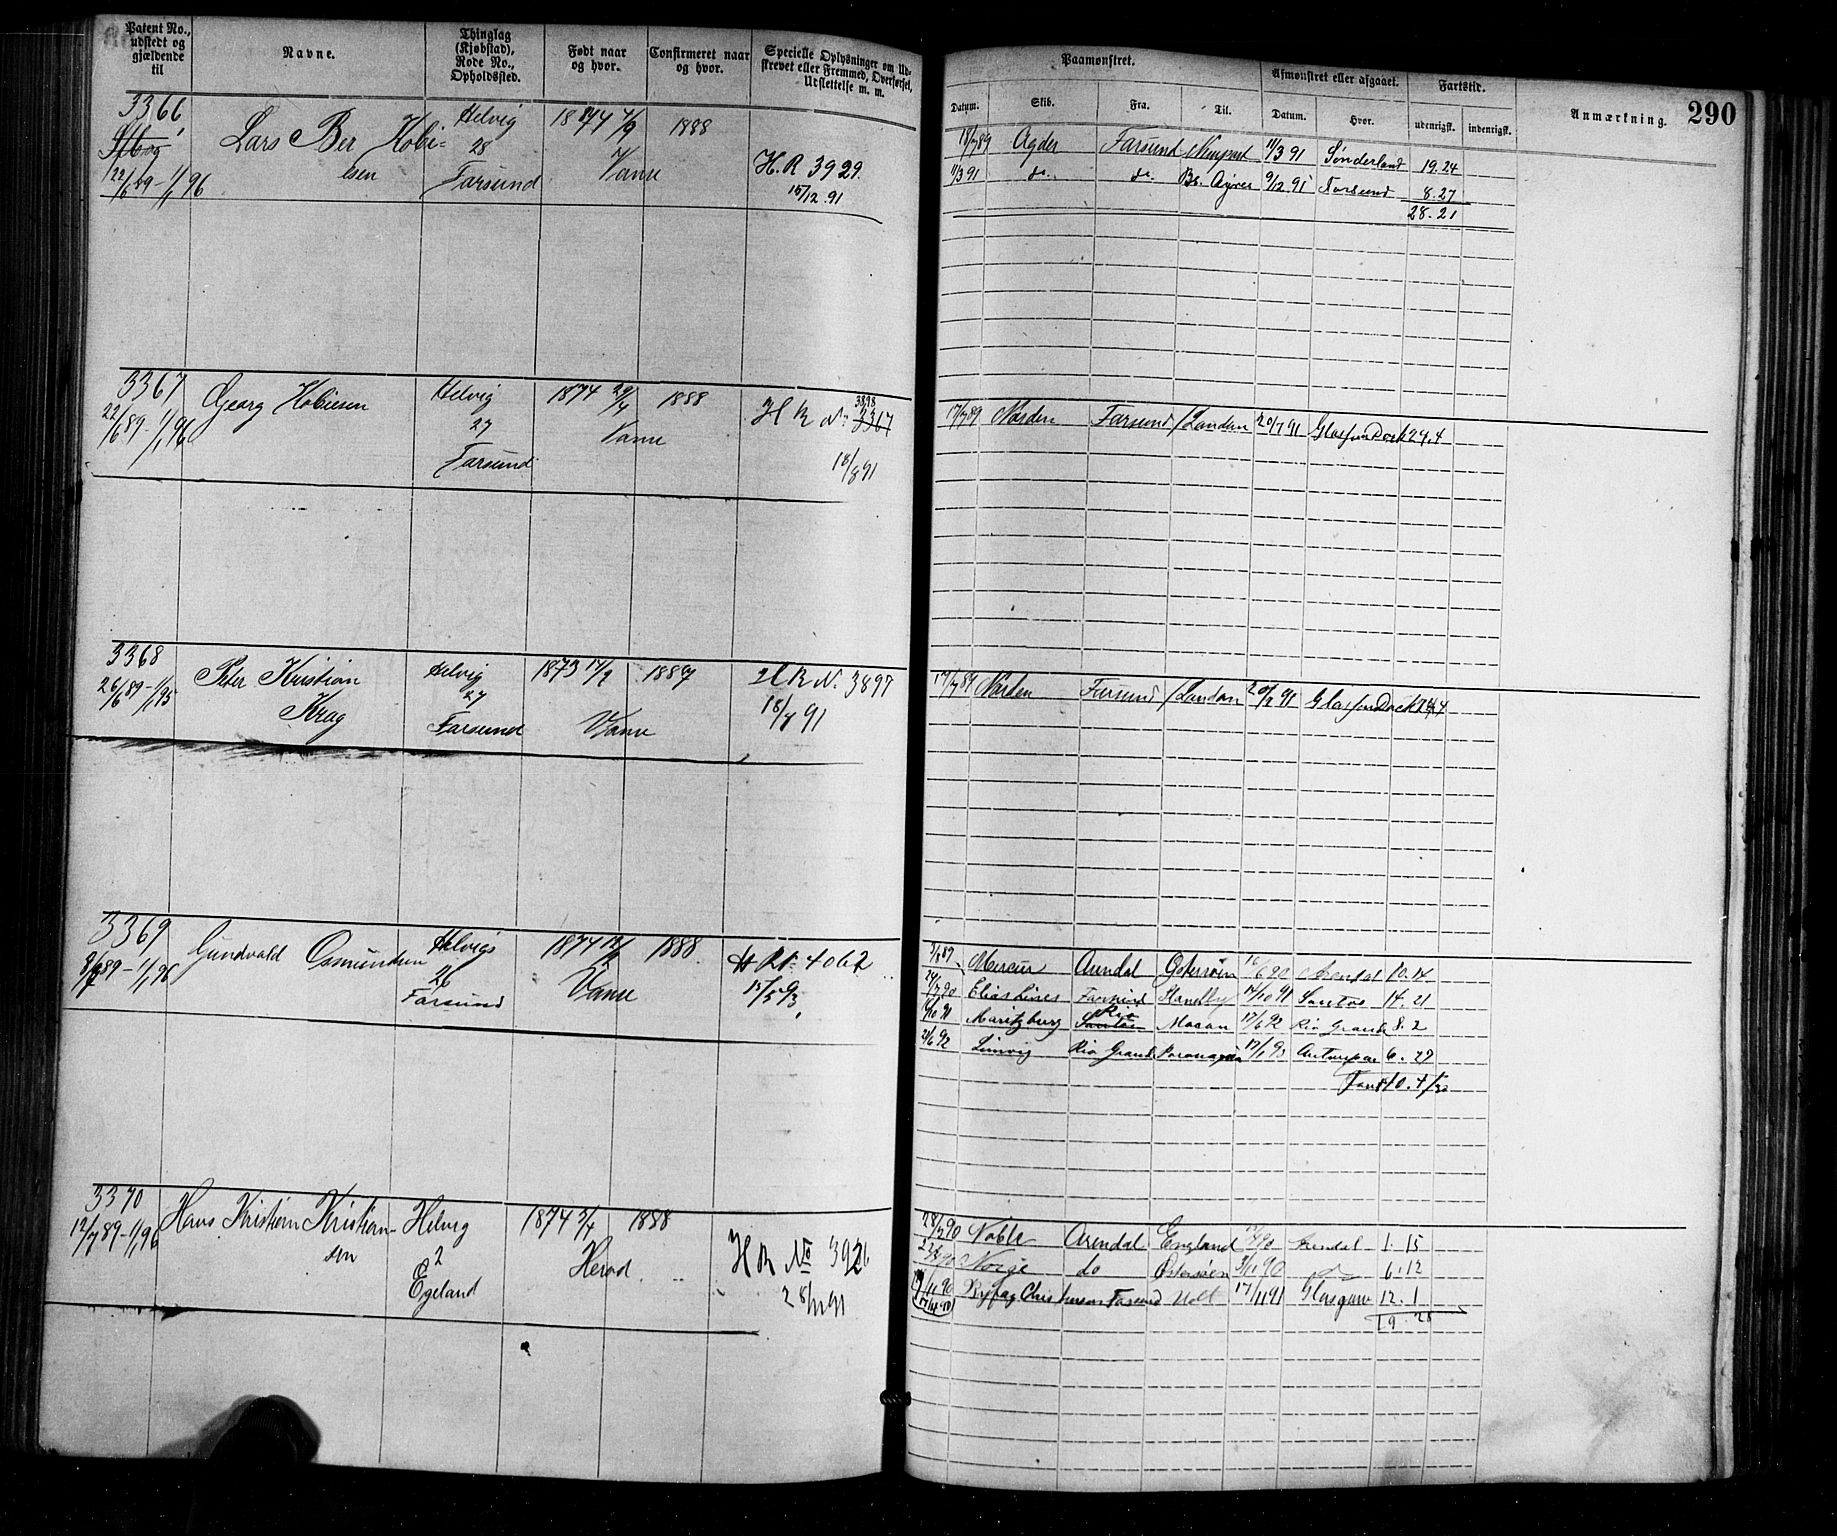 Patent No., udstedt og gjældende til
Navne.
Thinglag (Kjøbstad), Rode No., Opholdssted.
Født naar og hvor.
Confirmeret naar og hvor.
Specielle Oplysninger om Udskrevet eller Fremmed, Overførsel, Udslettelse m. m.
Paamønstret.
Datum. Skib. Fra. Til.
Afmønstret eller afgaaet.
Datum. Hvor.
Fartstid.
udenrigsk. indenrigsk.
Anmærkning.
290
3366
22/6 89 - 1/1 96
Lars Ber Hobi-
esen
Helvig
28
Farsund
1874 4/9
Vanse
1888
H.R 3929
15/12.91
18/7 89 Agder Farsund 11/3 91 Sønderland 19.24
11/3 91 do. do. Bs. Ayres 9/12 91 Farsund 8.27
28.21
3367
22/6 89 - 1/1 96
Georg Hobiesen
Helvig
27
Farsund
1874 29/4
Vanse
1888
3898
H R No 3367
18/8 91
17/7 89 Norden Farsund /Landan 20/7 91 24.4
3368
26/6 89 - 1/1 95
Peter Kristian
Krag
Helvig
27
Farsund
1873 17/2
Vanse
1887
H R No 3897
18/7 91
17/7 89 Norden Farsund /Landan 20/7 91
3369
8/7 89 - 1/1 96
Gundvald Osmundsen
Helvigs
26
Farsund
1874
Vanse
1888
H R No 4062
15/5 93
Mercur Arendal Østersøen 16/6 90 Arendal 10.14
24/7 90 Elias Farsund 14/10 91 Santos 14.21
Maritzburg Rio Santos Macau 17/6 92 Rio Grande 8.2
21/6 92 Rio Grande 6.27
3370
12/7 89 - 1/1 96
Hans Kristian Kristian-
sen
Helvig
2
Egeland
1874 3/4
Herad
1888
H R No 3926
28/11 91
28/3 90 Noble Arendal England Arendal 1.15
Norge do Østersøen 3/11 90 do 6.12
Farsund 17/11 91 Glasgow 12.1
19.28